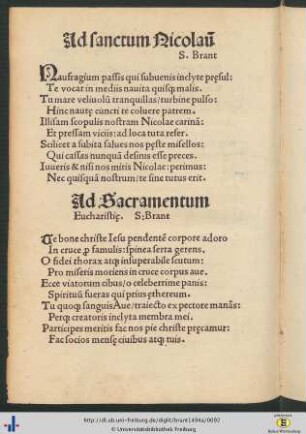 Ad sanctum Nicolaū
S. Brant
Naufragium passis qui subuenis inclyte pręsul:
Te vocat in mediis nauita quisqʒ malis.
Tu mare veliuolū tranquillas/turbine pulso:
Hinc nautę cuncti te coluere patrem.
Illisam scopulis nostram Nicolae carinā:
Et pressam viciis: ad loca tuta refer.
Scilicet a subita salues nos pęste misellos:
Qui cassas nunquā desinis esse preces.
Iuueris & nisi nos mitis Nicolae: perimus:
Nec quisquā nostrum/te sine tutus erit.
Ad Sacramentum
Eucharistię. S: Brant
Te bone christe Iesu pendentē corpore adoro
In cruce ꝓ famulis: spinea serta gerens.
O fidei thorax atqʒ insuperabile scutum:
Pro miseris moriens in cruce corpus aue.
Ecce viatorum cibus/o celeberrime panis:
Spirituū fueras qui prius ęthereum.
Tu quoqʒ sanguis Aue/traiecto ex pectore manās:
Perqʒ creatoris inclyta membra mei.
Participes meritis fac nos pie christe pręcamur:
Fac socios mensę ciuibus atqʒ tuis.
http://dl.ub.uni-freiburg.de/diglit/brant1494a/0092
© Universitätsbibliothek Freiburg